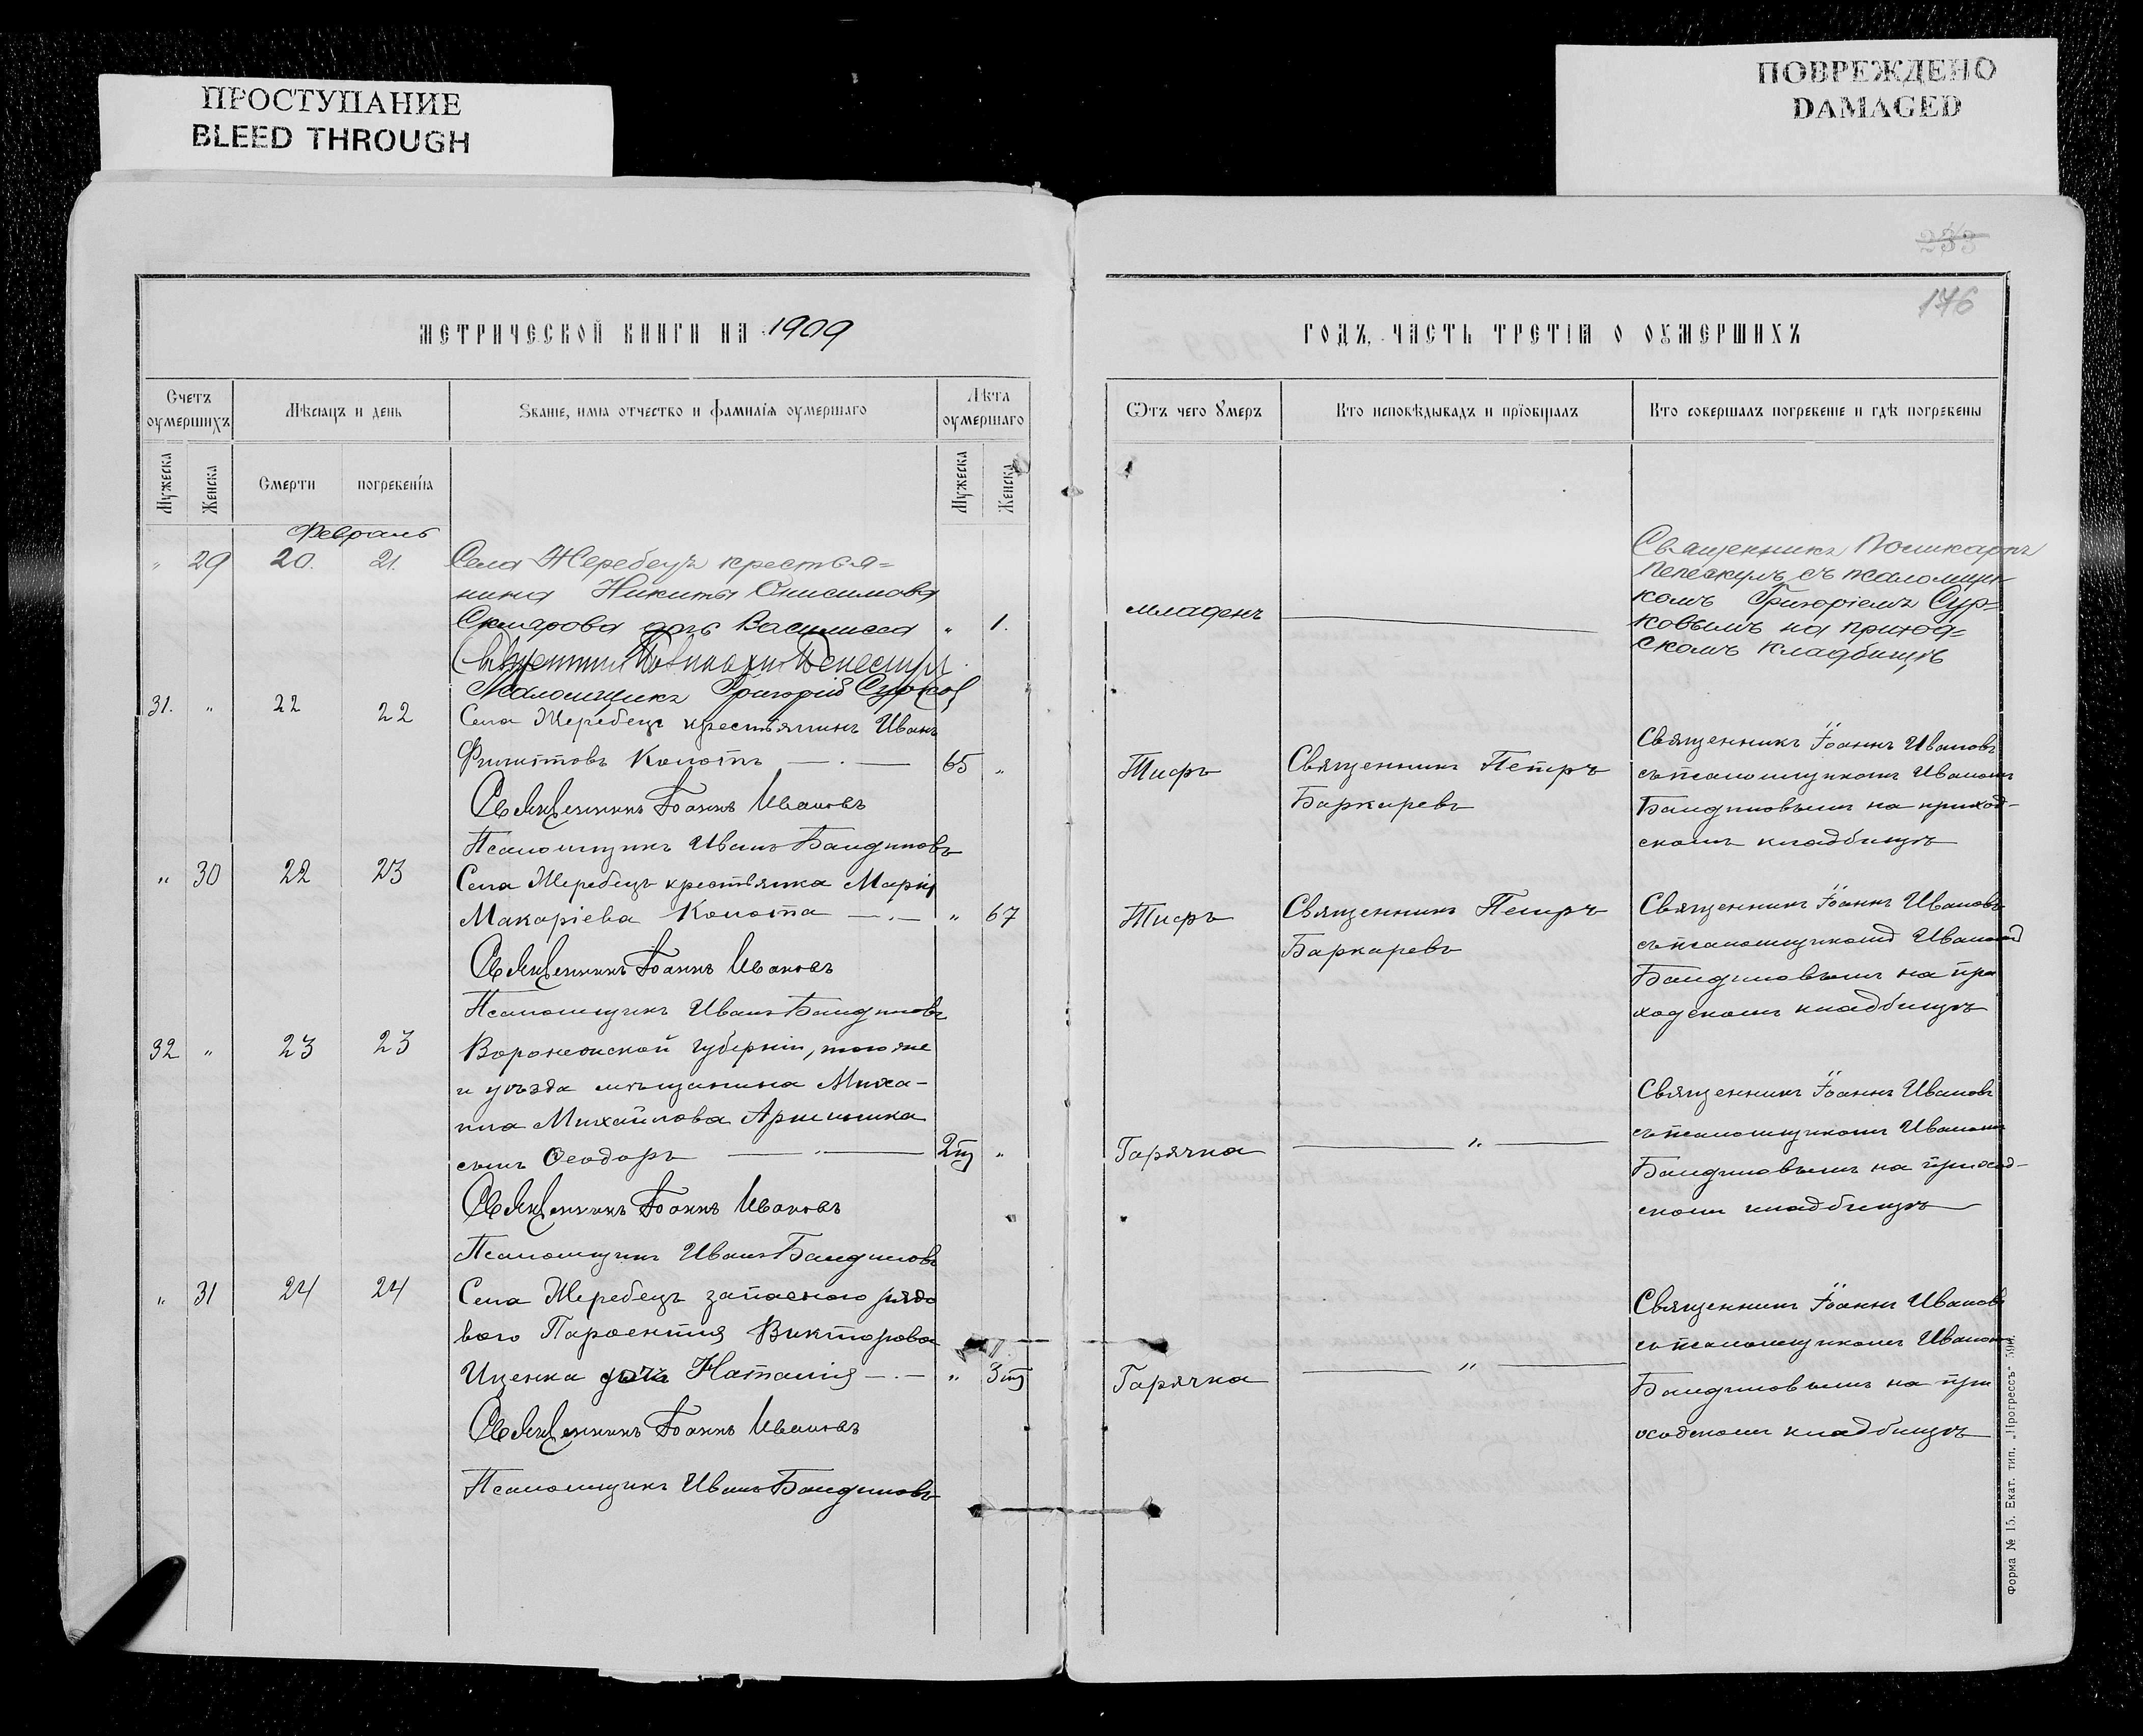 ПРОСТУПАНИЕ
BLEED THROUGH
ПОВРЕЖДЕНО
DAMAGED
233
176
МЕТРИЧЕСКОЙ КНИГИ НА 1909
ГОДЪ, ЧАСТЬ ТРЕТІѦ О ОУМЕРШИХЪ
Счетъ оумершихъ
Мѣсѧцъ и день
Званіе, имѧ отчество и фамиліѧ оумершаго
Лѣта оумершаго
Ѿтъ чего Умеръ
Кто исповѣдывалъ и пріобщалъ
Кто совершалъ погребеніе и гдѣ погребены
Мужеска
Женска
Смерти
погребеніѧ
Мужеска
Женска
Февраль
" 29 20. 21. Села Жеребецъ крестья=
нина Никиты Онисимова
Склярова дочь Василисса " 1.
Псаломщикъ Григорій Сурковъ
младенъ
Священникъ Поликарпъ
съ псаломщи
комъ Григоріемъ Сур=
ковымъ на приход=
скомъ кладбищѣ
31. " 22 22 Села Жеребецъ крестьянинъ Иванъ
Филиптовъ Колотъ 65 "
Священникъ Іоаннъ Ивановъ
Псаломщикъ Иванъ Бандиловъ
Тифъ
Священникъ Петръ
Баркаревъ
Священникъ Іоаннъ Ивановъ
съ псаломщикомъ Иваномъ
Бандиловымъ на приход-
скомъ кладбищѣ
" 30 22 23 Села Жеребецъ крестьянка Марія
Макаріева Колота " 67
Священникъ Іоаннъ Ивановъ
Псаломщикъ Иванъ Бандиловъ
Тифъ
Священникъ Петръ
Баркаревъ
Священникъ Іоаннъ Ивановъ
съ псаломщикомъ Иваномъ
Бандиловымъ на при
ходскомъ кладбищѣ
32 " 23 23 Воронежской губерніи, того же
и уѣзда мѣщанина Миха-
ила Михайлова
сынъ Ѳеодоръ 2 "
Священникъ Іоаннъ Ивановъ
Псаломщикъ Иванъ Бандиловъ
Горячка
"
Священникъ Іоаннъ Ивановъ
съ псаломщикомъ Иваномъ
Бандиловымъ на приход-
скомъ кладбищѣ
" 31 24 24 Села Жеребецъ запаснаго рядо
вого Парѳентія Викторова
Иценка дочь Наталія " 3
Священникъ Іоаннъ Ивановъ
Псаломщикъ Иванъ Бандиловъ
Горячка
"
Священникъ Іоаннъ Ивановъ
съ псаломщикомъ Иваномъ
Бандиловымъ на при
ходскомъ кладбищѣ
Форма № 15. Екат. тип. „Прогрессъ"